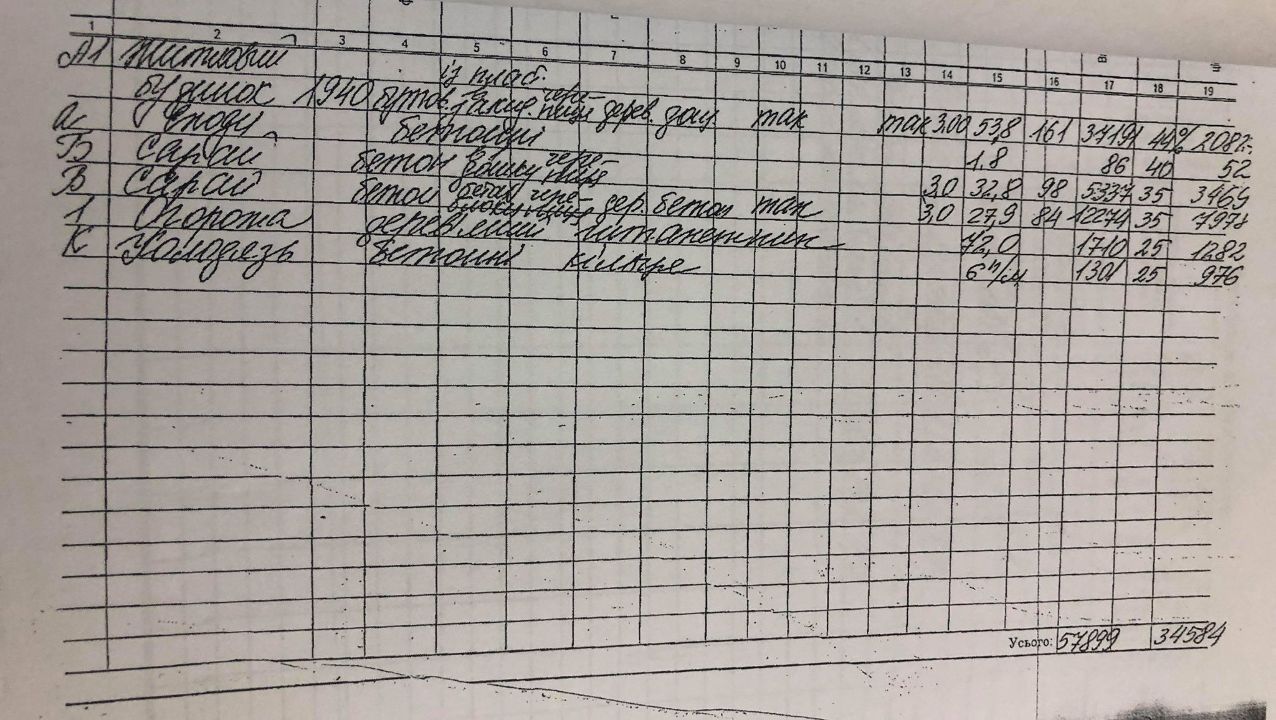 1 2 3 4 5 6 7 8 9 10 11 12 13 14 15 16 17 18 19
А1 Житловий
із пласт.
будинок 1940 бутов. закид. чере- пиця дерев. дощ. так так 3.00 53,8 161 37191 44%
а Входи бетонний 1.8 86 40 52
Б Сарай бетон чере- пиця 3,0 32,8 98 5337 35 3469
В Сарай бетон бетон. блоки чере- пиця дер. бетон так 3,0 27,9 84 12274 35 7978
1 Огорожа деревляний штахетник 72,0 1710 25 1282
К Колодязь бетонні кільце 6 п/м 1301 25 976
Усього: 57899 34584